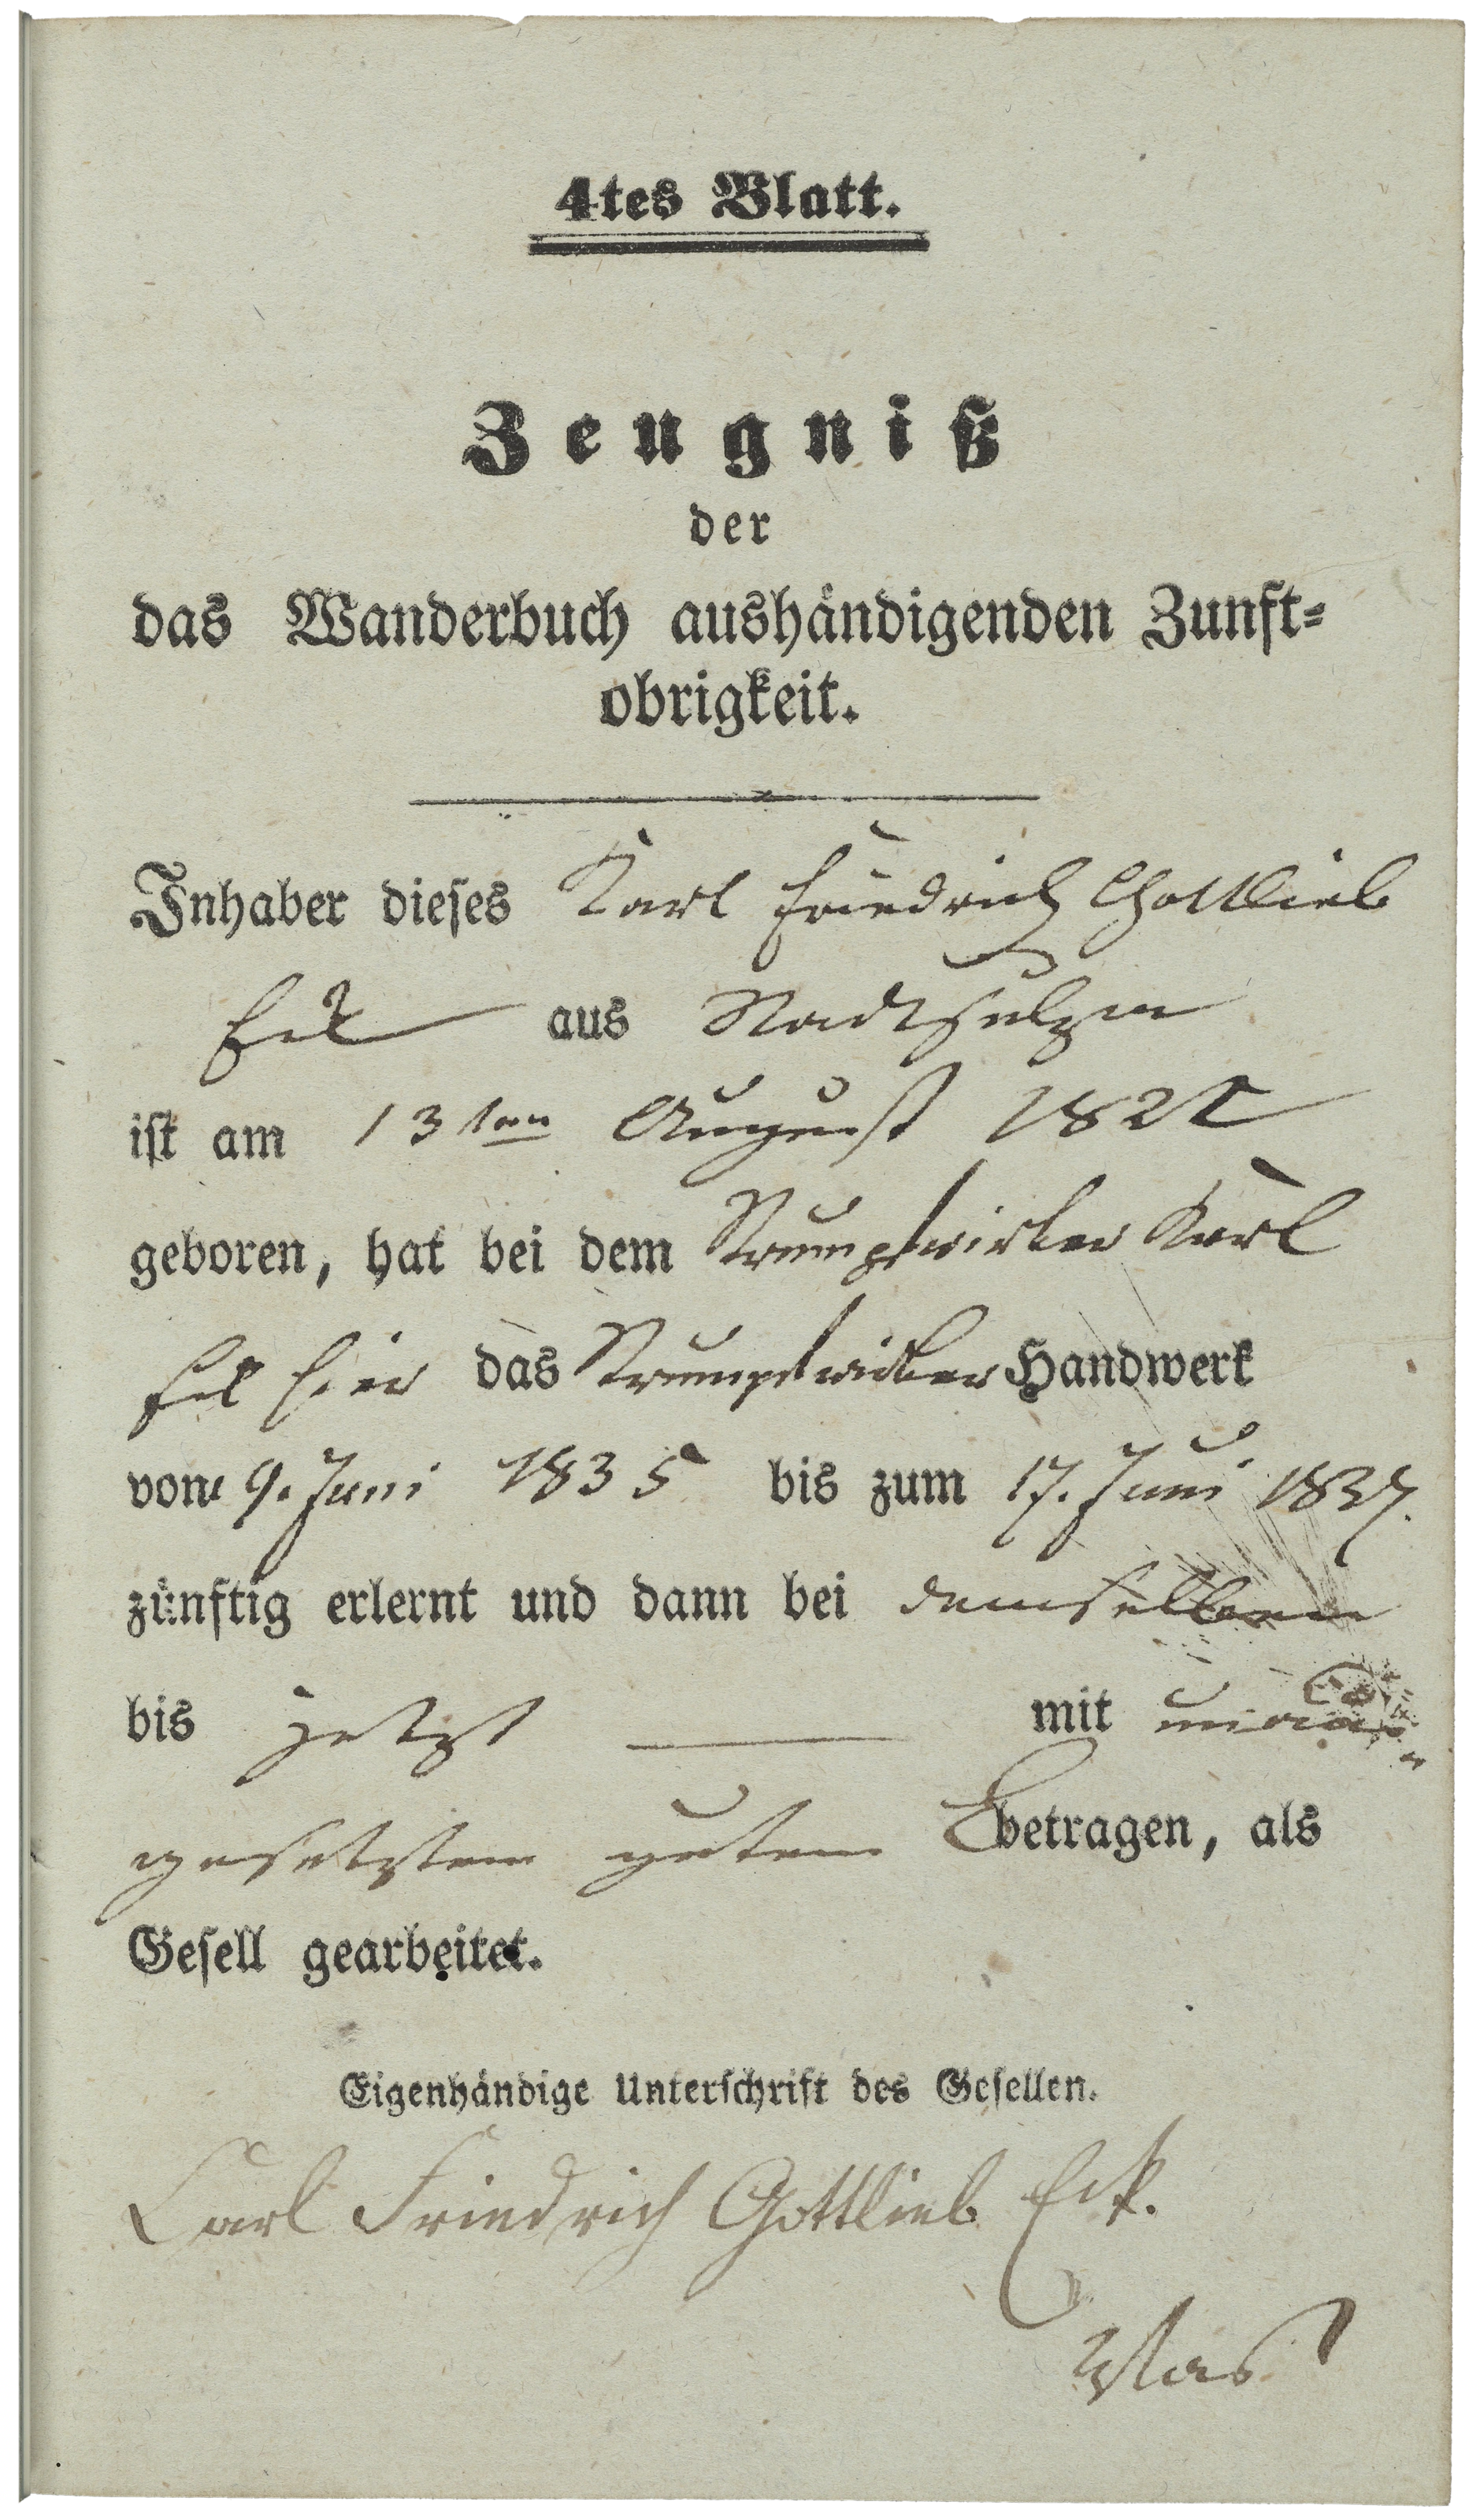 4tes Blatt.
Zeugniß
der
das Wanderbuch aushändigenden Zunft=
obrigkeit.
Inhaber dieses Karl Friedrich Gottlieb
Eck aus Stadtsulza
ist am 13ten August 1821
geboren, hat bei dem Strumpfwirker Karl
Eck hier das Strumpfwirker Handwerk
vom 9. Juni 1835 bis zum 17. Juni 1837.
zünftig erlernt und dann bei demselben
bis jetzt mit
gesetztem gutem Betragen, als
Gesell gearbeitet.
Eigenhändige Unterschrift des Gesellen.
Carl Friedrich Gottlieb Eck.